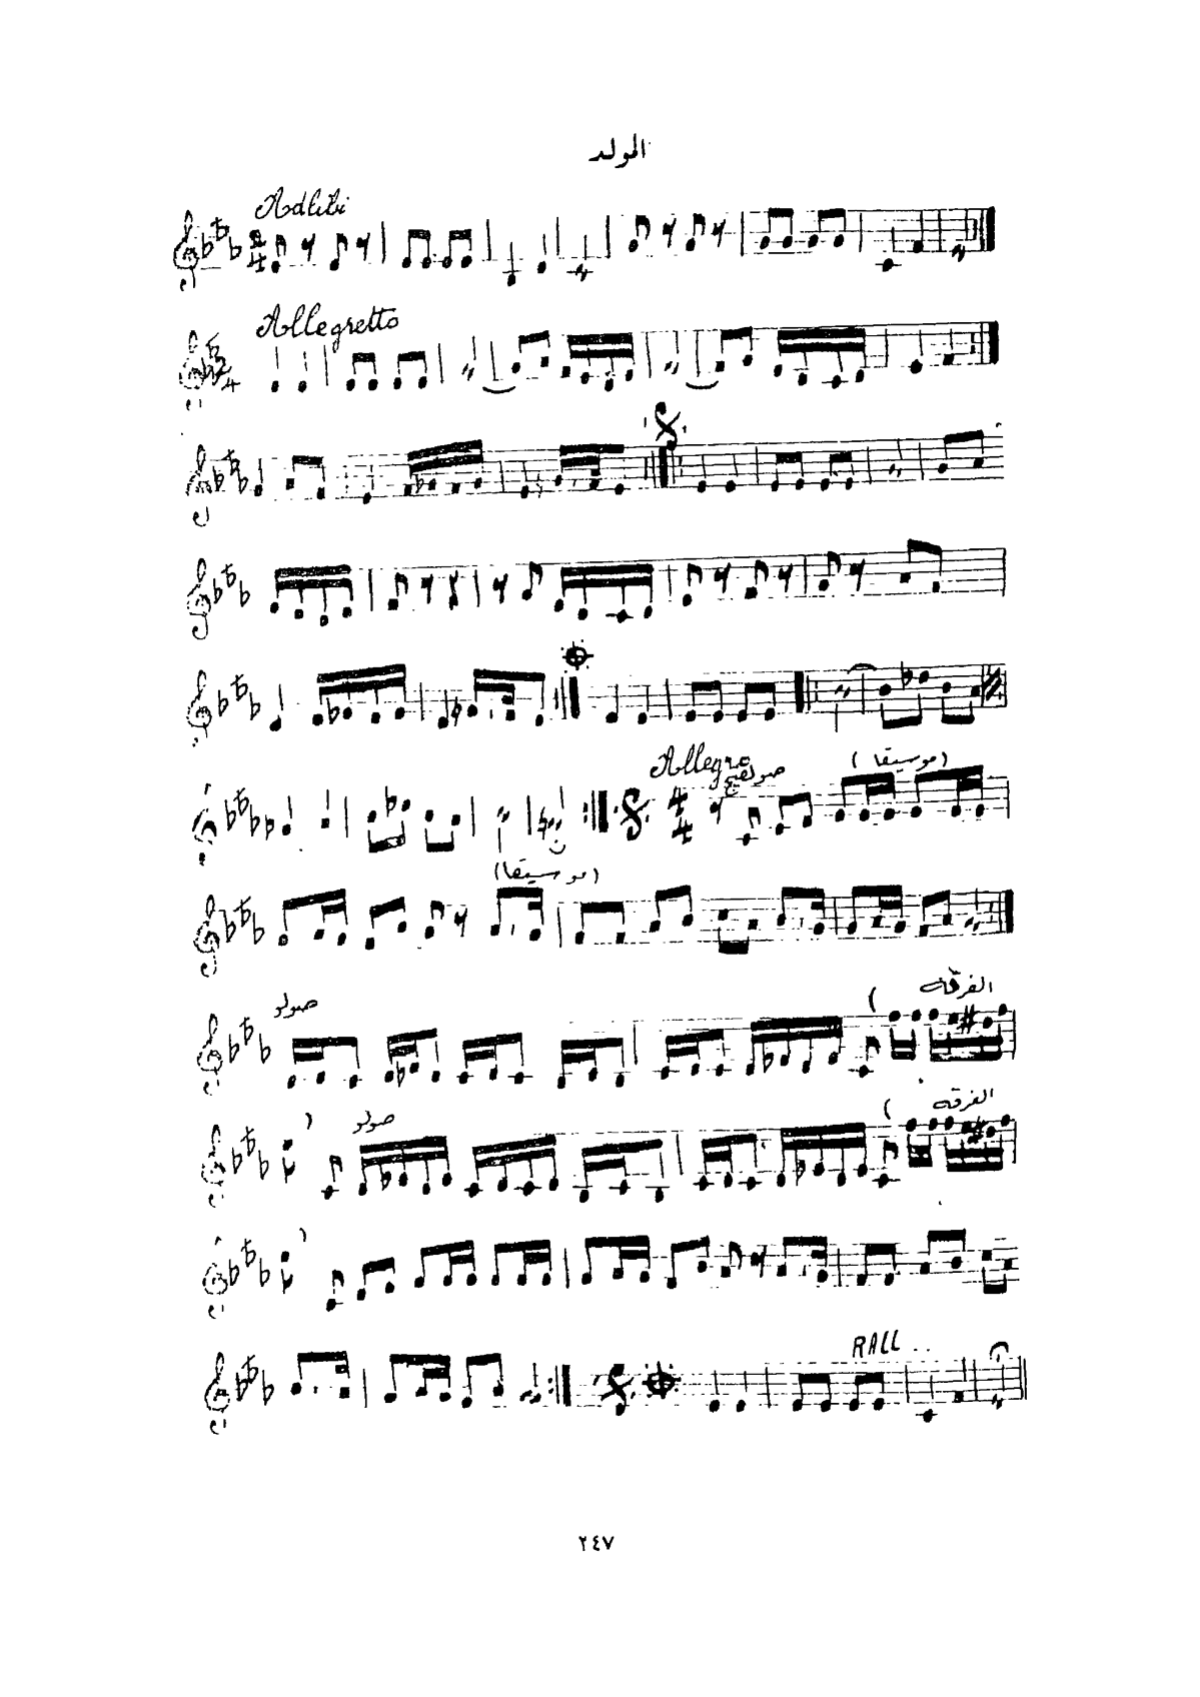 المولد
Adlibi
2
4
Allegretto
2
4
Allegro
4
4
(موسيقا)
(موسيقا)
صولو
الفرقة
صولو
الفرقة
RALL ..
٢٤٧